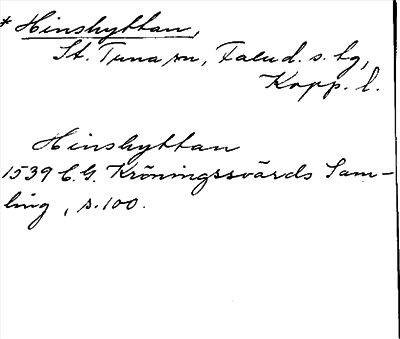 * Hinshyttan,
St. Tuna sn, Falu d. s. tg,
Kopp. l.
Hinshyttan
1539 C. G. Kröningssvärds Sam-
ling, s. 100.